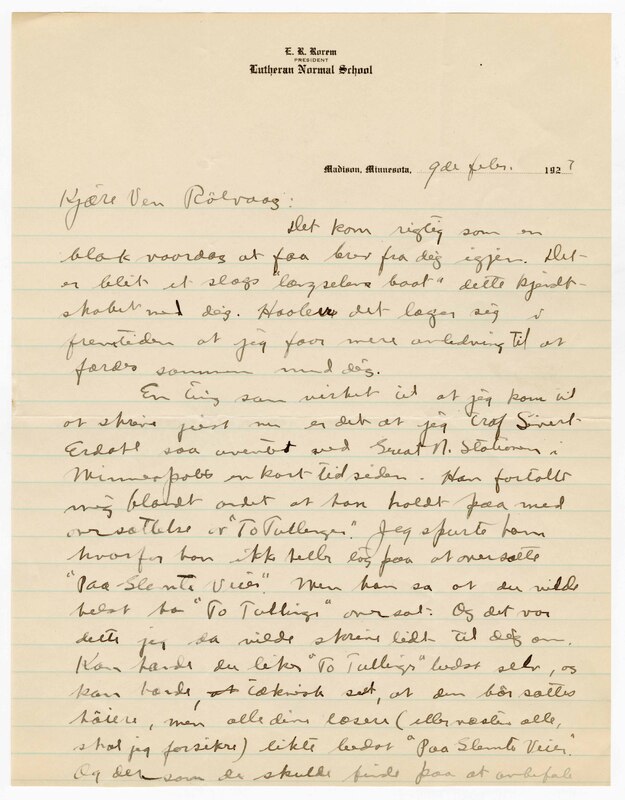 E. R. Rorem
PRESIDENT
Lutheran Normal School
Madison, Minnesota, 9de febr. 1927
Kjære Ven Rölvaag:
Det kom rigtig som en
blak vaardag at faa brev fra dig igjen. Det
er blit et slags "længselens baat" dette kjendt-
skabet med dig. Haaber det lager sig i
fremtiden at jeg faar mere anledning til at
færdes sammen med dig.
En ting som virket til at jeg kom til
at skrive just nu er det at jeg traf Sivert
Erdahl saa uventet ved Great N. Stationen i
Minneapolis en kort tid siden. Han fortalte
mig blandt andet at han holdt paa med
oversættelse av "To Tullinger". Jeg spurte ham
hvorfor han ikke heller tog paa at oversætte
"Paa Glemte Veie". Men han sa at du vilde
helst ha "To Tullinge" oversat. Og det var
dette jeg da vilde skrive lidt til dig om.
Kan hænde du liker "To Tullinge" bedst selv, og
kan hænde, at teknisk set, at den bör sættes
höiere, men alle dine læsere (eller næsten alle,
skal jeg forsikre) likte bedst "Paa Glemte Veie".
Og den som de skulde finde paa at anbefale